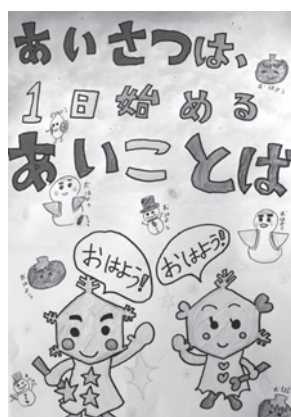 あいさつは、
1日始める
あいことば
おはよう!
おはよう!